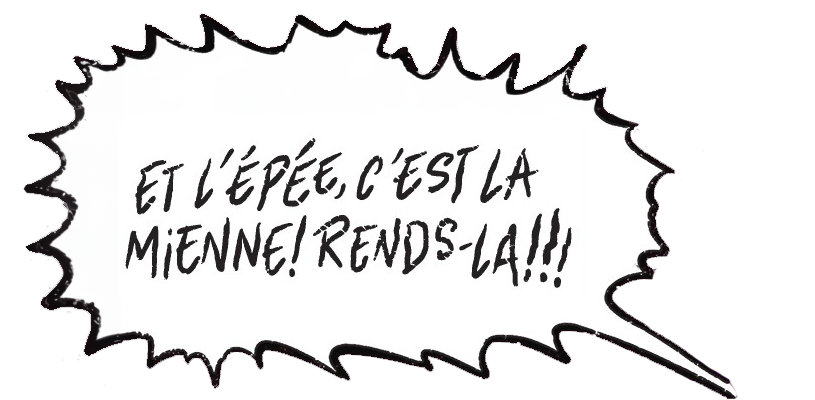 ET L'ÉPÉE, C'EST LA
MiENNE! RENDS-LA!!!